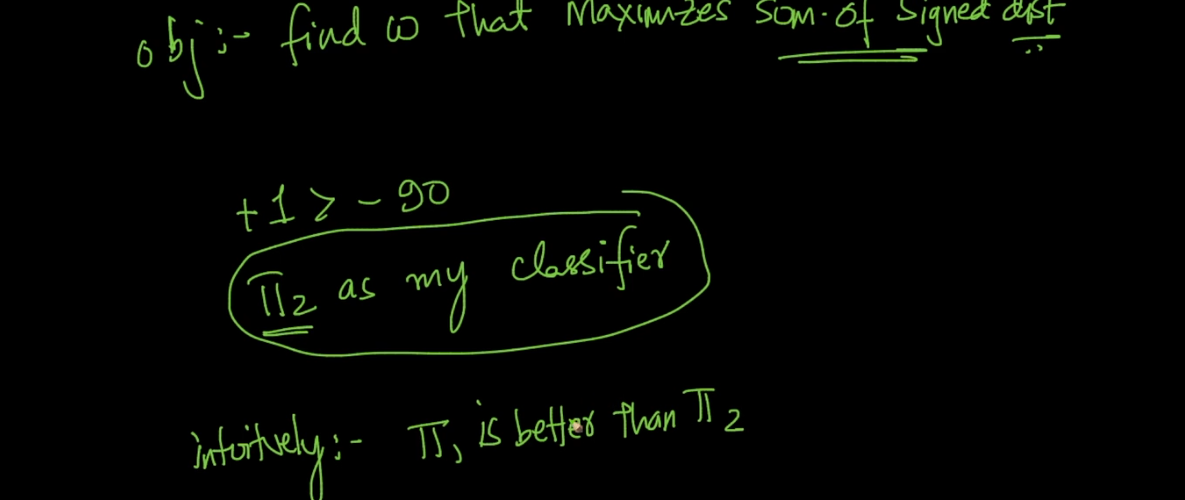 obj:- find ω that Maximizes sum. of signed dist
+1 > - 90
π2 as my classifier
intuitively:- π1 is better than π2